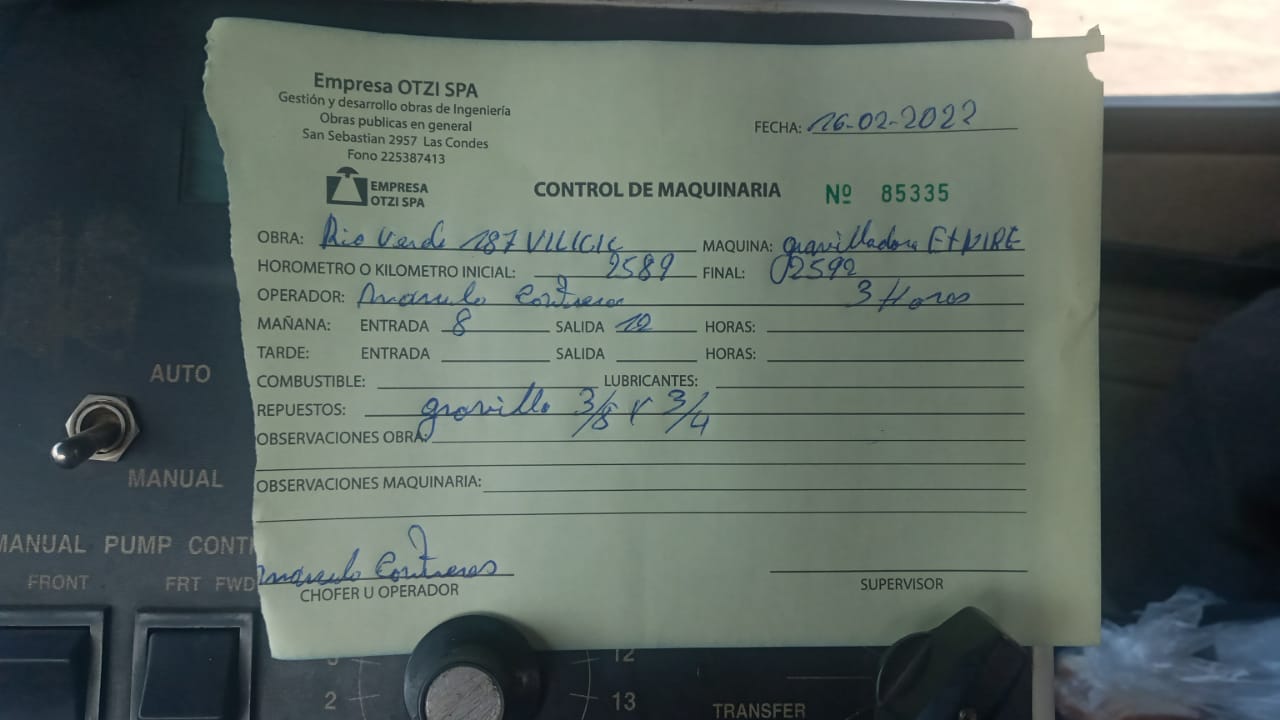 Empresa OTZI SPA
Gestión y desarrollo obras de Ingeniería
Obras publicas en general
San Sebastian 2957 Las Condes
Fono 225387413
EMPRESA
OTZI SPA
FECHA: 16-02-2022
CONTROL DE MAQUINARIA Nº 85335
OBRA: Rio Verde 187 MAQUINA: gravilladora
HOROMETRO O KILOMETRO INICIAL: 2589 FINAL: 02592
OPERADOR: Marcelo Contreras 3 Horas
MAÑANA: ENTRADA 8 SALIDA HORAS:
TARDE: ENTRADA SALIDA HORAS:
COMBUSTIBLE: LUBRICANTES:
REPUESTOS: gravilla 3/8 y 3/4
OBSERVACIONES OBRA:
OBSERVACIONES MAQUINARIA:
Marcelo Contreras
CHOFER U OPERADOR
SUPERVISOR
AUTO
MANUAL
MANUAL PUMP
FRONT
FRT FWD
2
12
13
TRANSFER